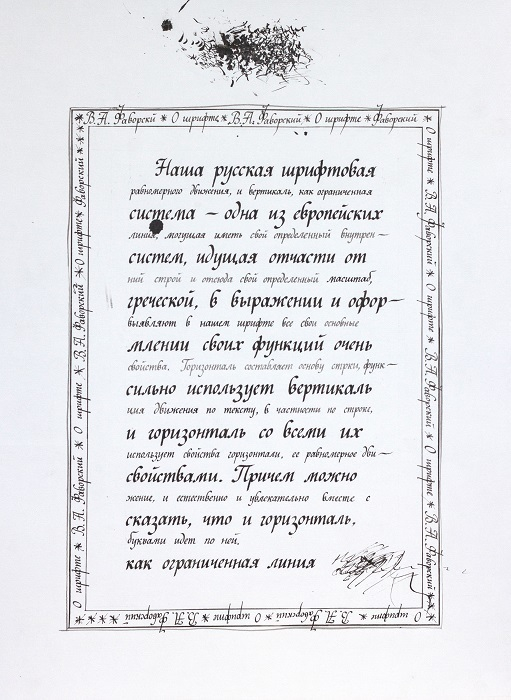 В.А. Фаворскй * О шрифте * В.А. Фаворский * О шрифте * Фаворский *
Наша русская шрифтовая
равномерного движения, и вертикаль, как ограниченная
система — одна из европейских
линия, могущая иметь свой определенный внутрен-
систем, идущая отчасти от
ний строй и отсюда свой определенный масштаб,
греческой, в выражении и офор—
выявляют в нашем шрифте все свои основные
млении своих функций очень
свойства. Горизонталь составляет основу стрки, функ-
сильно использует вертикаль
ция движения по тексту, в частности по строке,
и горизонталь со всеми их
использует свойства горизонтали, ее равномерное дви—
свойствами. Причем можно
жение, и естественно и увлекательно вместе с
сказать, что и горизонталь,
буквами идет по ней,
как ограниченная линия
О шрифте * В.А. Фаворский * О шрифте * В.А. Фаворский * О шрифте * В.А. Фаворский *
О шрифте * В.А. Фаворский * О шрифте * В.А. Фаворский * О шрифте * В.А. Фаворский *
О шрифте * В.А. Фаворский * О шрифте * В.А. Фаворский * * * * *